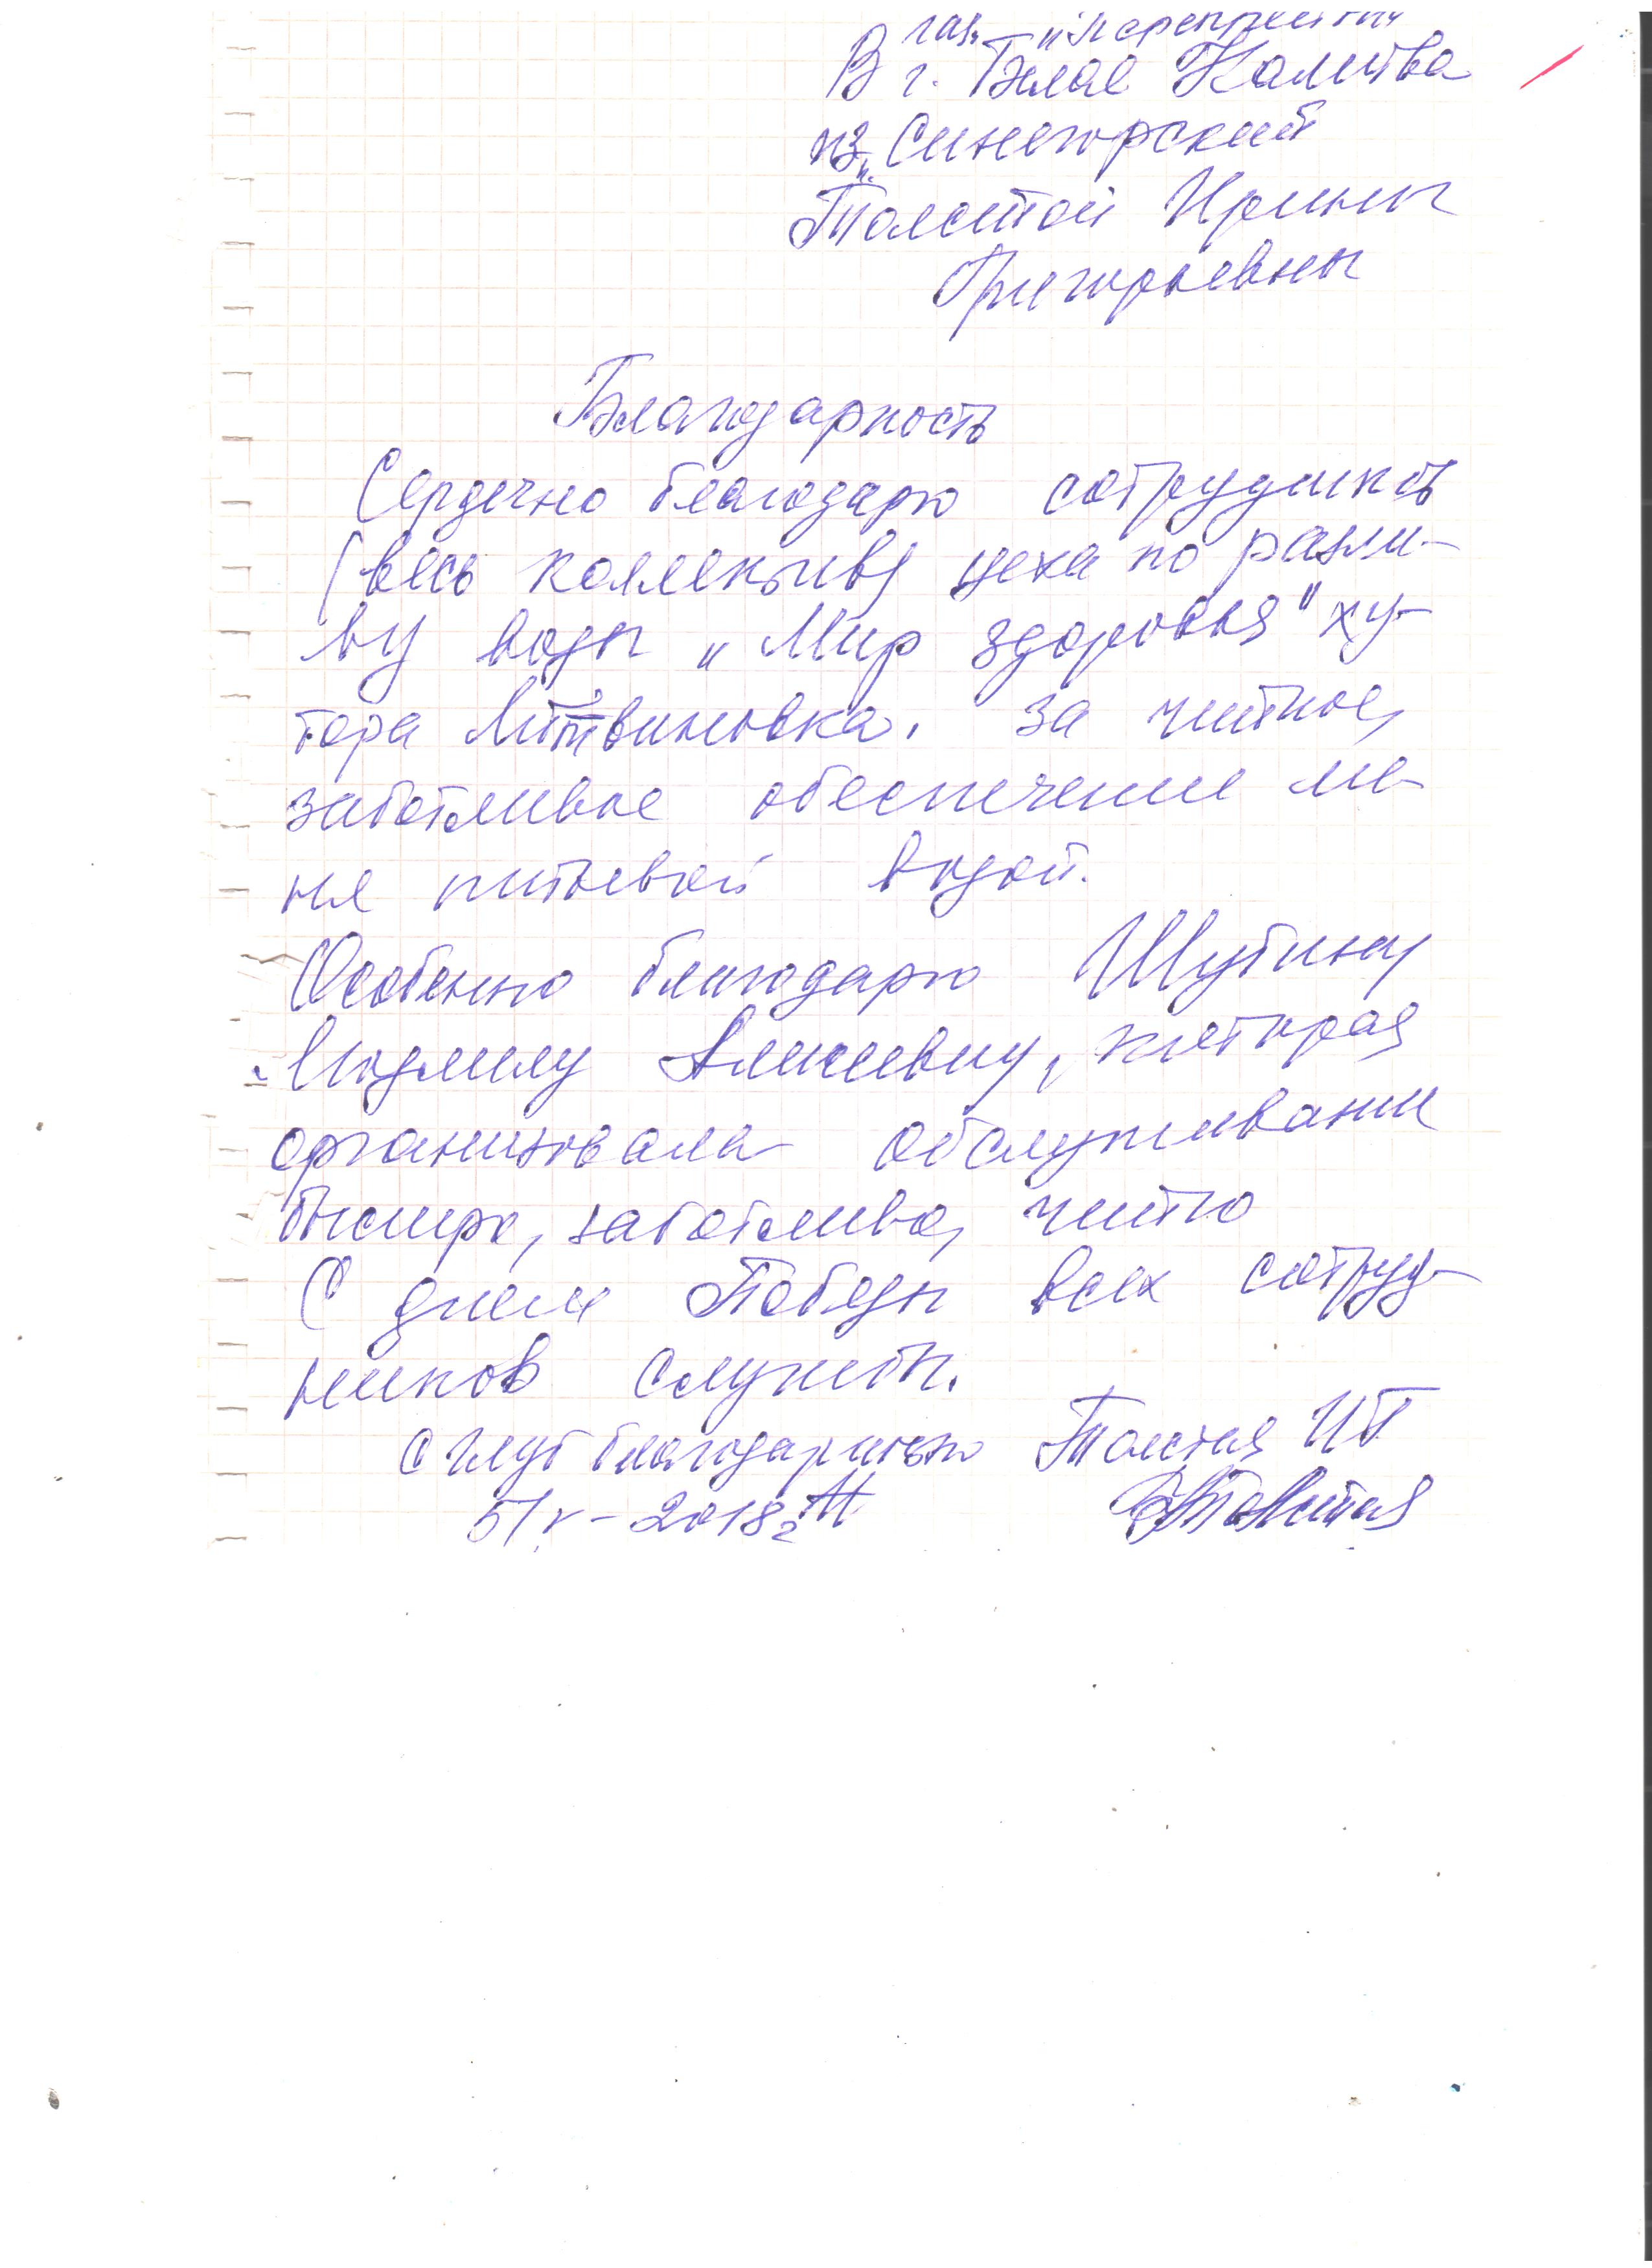 В газ. „Перекрёсток"
г. Белая Калитва
из п. Синегорский
Толстой Ирины
Григорьевны
Благодарность
Сердечно благодарю сотрудников
(весь коллектив) цеха по разли-
ву воды „Мир здоровья" ху-
тора Литвиновка. За чуткое,
заботливое обеспечение ме-
ня питьевой водой.
Особенно благодарю Шубину
Людмилу Алексеевну, которая
организовала обслуживание
быстро, заботливо, чутко
С днем Победы всех сотруд-
ников службы.
С глуб благодарностью Толстая ИГ
5/V – 2018г
Толстая